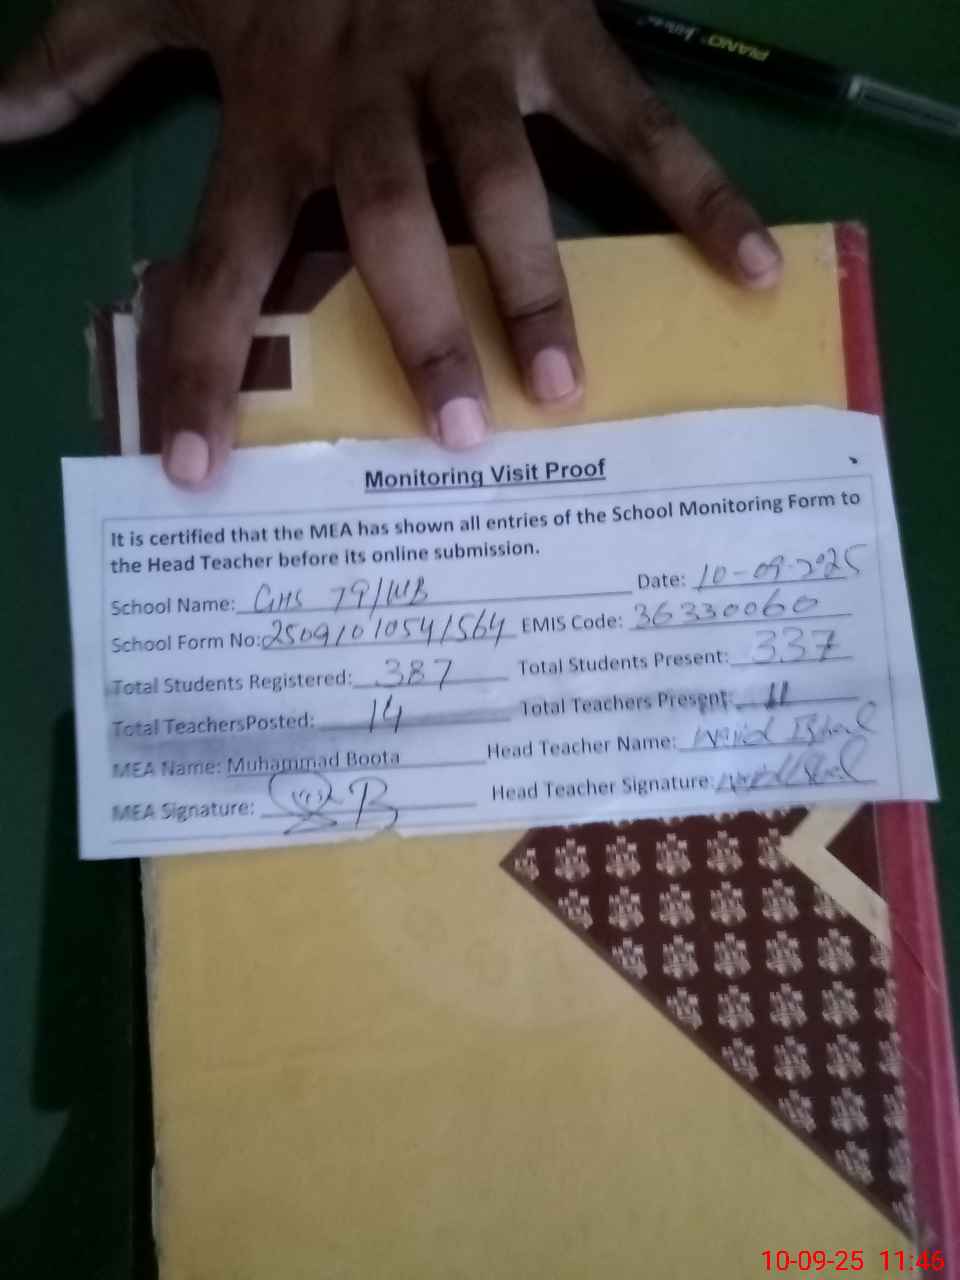 PIANO
Monitoring Visit Proof
It is certified that the MEA has shown all entries of the School Monitoring Form to
the Head Teacher before its online submission.
School Name: GHS 79/WB Date: 10-09-2025
School Form No: 25091010541564 EMIS Code: 36330060
Total Students Registered: 387 Total Students Present: 337
Total TeachersPosted: 14 Total Teachers Present: 11
MEA Name: Muhammad Boota Head Teacher Name:
MEA Signature: Head Teacher Signature:
10-09-25 11:46